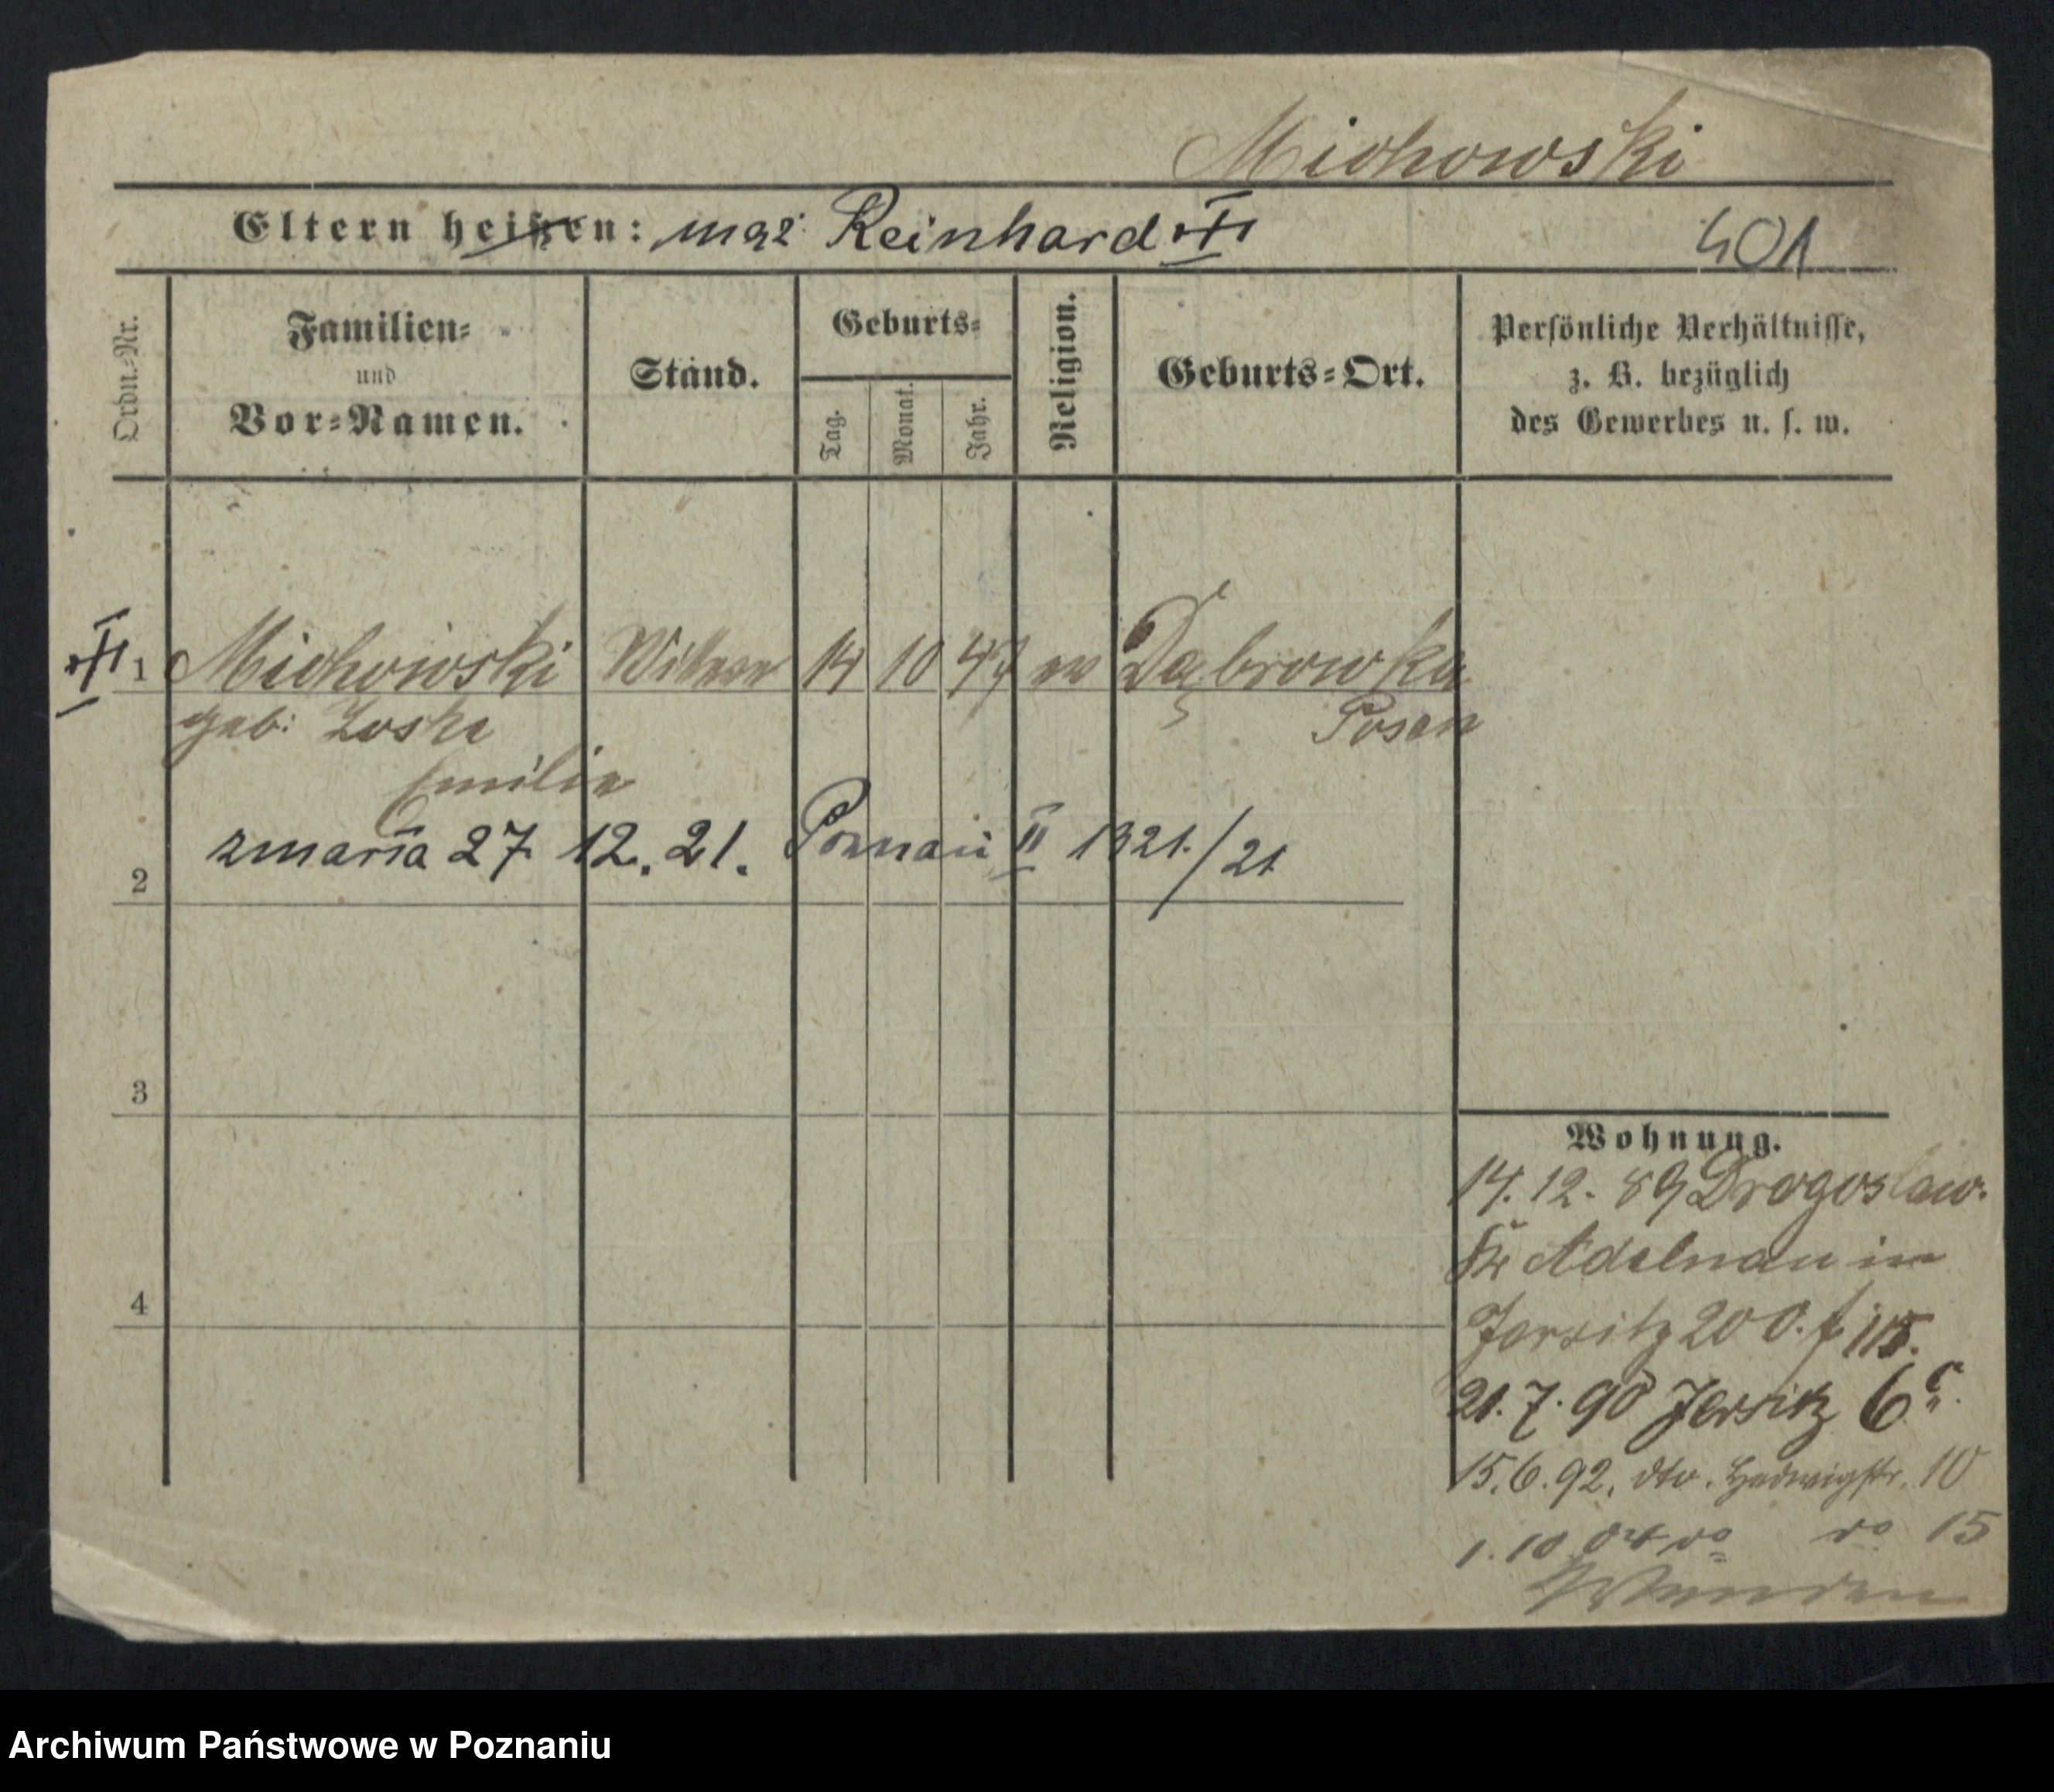 Michowski
Eltern heißen: mąż Reinhard
401
Ordn.-Nr.
Familien-
und
Vor-Namen.
Stand.
Geburts-
Tag.
Monat.
Jahr.
Religion.
Geburts-Ort.
Persönliche Verhältnisse,
z. B. bezüglich
des Gewerbes u. s. w.
1 Michowski Wittwe 14 10 47 ev Dąbrowka
geb: Zoske Posen
Emilie
zmarła 27. 12. 21. Poznań II 1321./21
2
3
4
Wohnung.
14. 12. 89 Drogoslaw.
Kr Adelnau in
Jersitz 200.f 115.
21. 7. 90 Jersitz 6c.
15.6.92. dto. Hedwigstr. 10
1. 10 do 15
Archiwum Państwowe w Poznaniu